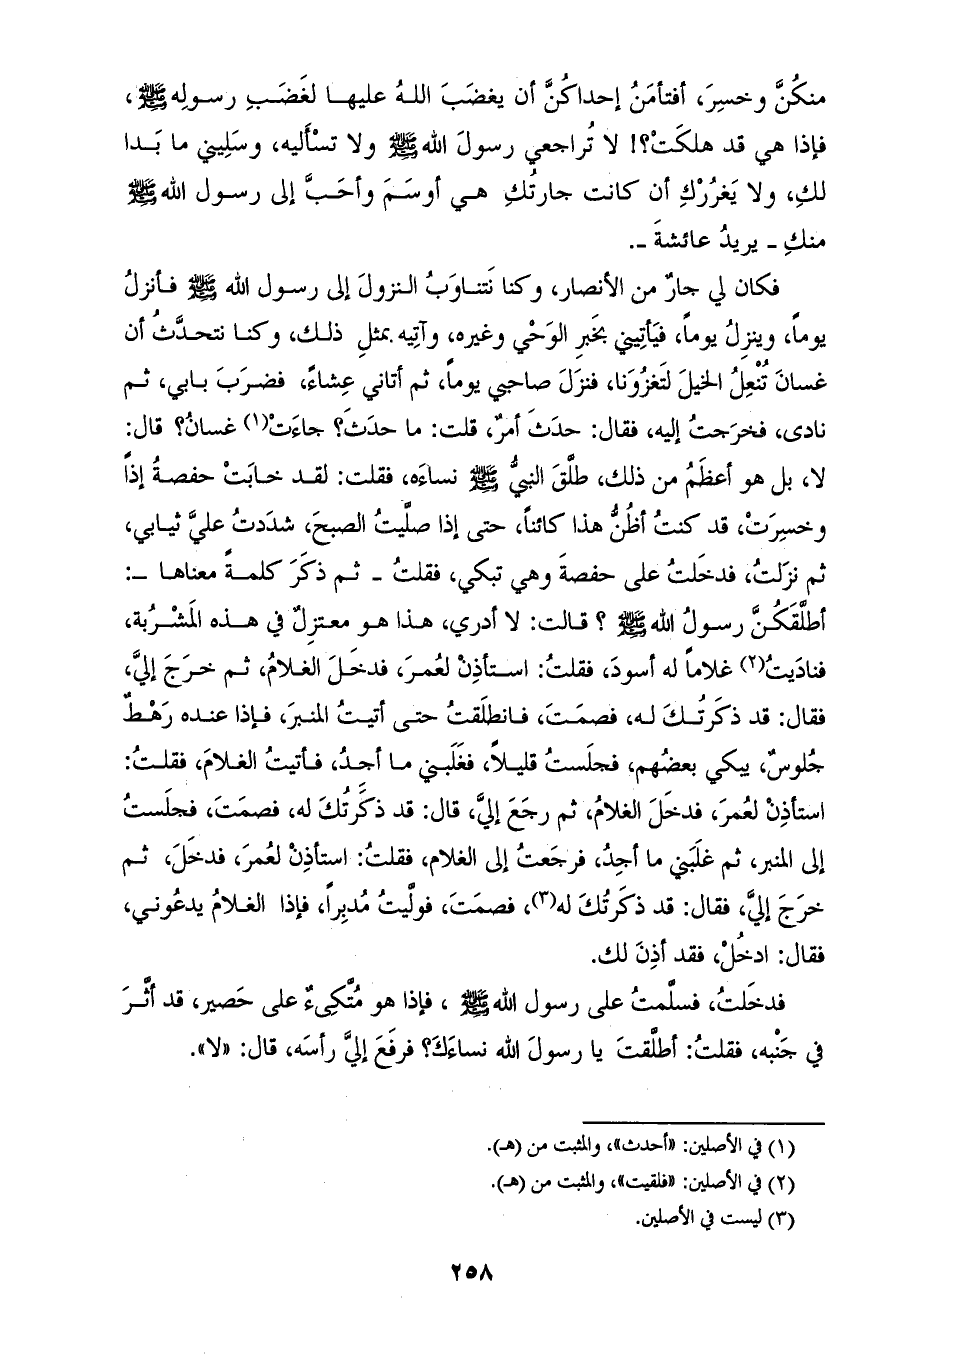 منكُنَّ وخسِرَ، أفتأمَنُ إحداكُنَّ أن يغضَبَ اللهُ عليها لغَضَبِ رسولِه ﷺ،
فإذا هي قد هلكَتْ؟! لا تُراجعي رسولَ الله ﷺ ولا تسْأَليه، وسَلِيني ما بَدا
لكِ، ولا يَغرُرْكِ أن كانت جارتُكِ هي أوسَمَ وأحَبَّ إلى رسول الله ﷺ
منكِ ـ يريدُ عائشةَ ـ.
فكان لي جارٌ من الأنصار، وكنا نَتناوَبُ النزولَ إلى رسول الله ﷺ فأنزلُ
يوماً، وينزِلُ يوماً، فيَأتِيني بخَبرِ الوَحْي وغيره، وآتِيه بمثلِ ذلك، وكنا نتحدَّثُ أن
غسانَ تُنْعِلُ الخيلَ لتَغزُوَنا، فنزَلَ صاحبي يوماً، ثم أتاني عِشاءً، فضرَبَ بابي، ثم
نادى، فخرَجتُ إليه، فقال: حدَثَ أمرٌ، قلت: ما حدَثَ؟ جاءَتْ(١) غسانُ؟ قال:
لا، بل هو أعظَمُ من ذلك، طلَّقَ النبيُّ ﷺ نساءَه، فقلت: لقد خابَتْ حفصةُ إذاً
وخسِرَتْ، قد كنتُ أظُنُّ هذا كائناً، حتى إذا صلَّيتُ الصبحَ، شدَدتُ عليَّ ثيابي،
ثم نزَلتُ، فدخَلتُ على حفصةَ وهي تبكي، فقلتُ ـ ثم ذكَرَ كلمةً معناها ـ:
أطلَّقَكُنَّ رسولُ الله ﷺ ؟ قالت: لا أدري، هذا هو معتزِلٌ في هذه المَشْرُبة،
فنادَيتُ(٢) غلاماً له أسودَ، فقلتُ: استأذِنْ لعُمرَ، فدخَلَ الغلامُ، ثم خرَجَ إليَّ،
فقال: قد ذكَرتُكَ له، فصمَتَ، فانطلَقتُ حتى أتيتُ المنبرَ، فإذا عنده رَهْطٌ
جُلوسٌ، يبكي بعضُهم، فجلَستُ قليلاً، فغَلَبني ما أجدُ، فأتيتُ الغلامَ، فقلتُ:
استأذِنْ لعُمرَ، فدخَلَ الغلامُ، ثم رجَعَ إليَّ، قال: قد ذكَرتُكَ له، فصمَتَ، فجلَستُ
إلى المنبر، ثم غلَبَني ما أجِدُ، فرجَعتُ إلى الغلام، فقلتُ: استأذِنْ لعُمرَ، فدخَلَ، ثم
خرَجَ إليَّ، فقال: قد ذكَرتُكَ له(٣)، فصمَتَ، فولَّيتُ مُدبِراً، فإذا الغلامُ يدعُوني،
فقال: ادخُلْ، فقد أذِنَ لك.
فدخَلتُ، فسلَّمتُ على رسول الله ﷺ ، فإذا هو مُتَّكِىءٌ على حَصير، قد أثَّرَ
في جَنْبه، فقلتُ: أطلَّقتَ يا رسولَ الله نساءَكَ؟ فرفَعَ إليَّ رأسَه، قال: «لا».
(١) في الأصلين: «أحدث»، والمثبت من (هـ).
(٢) في الأصلين: «فلقيت»، والمثبت من (هـ).
(٣) ليست في الأصلين.
٢٥٨